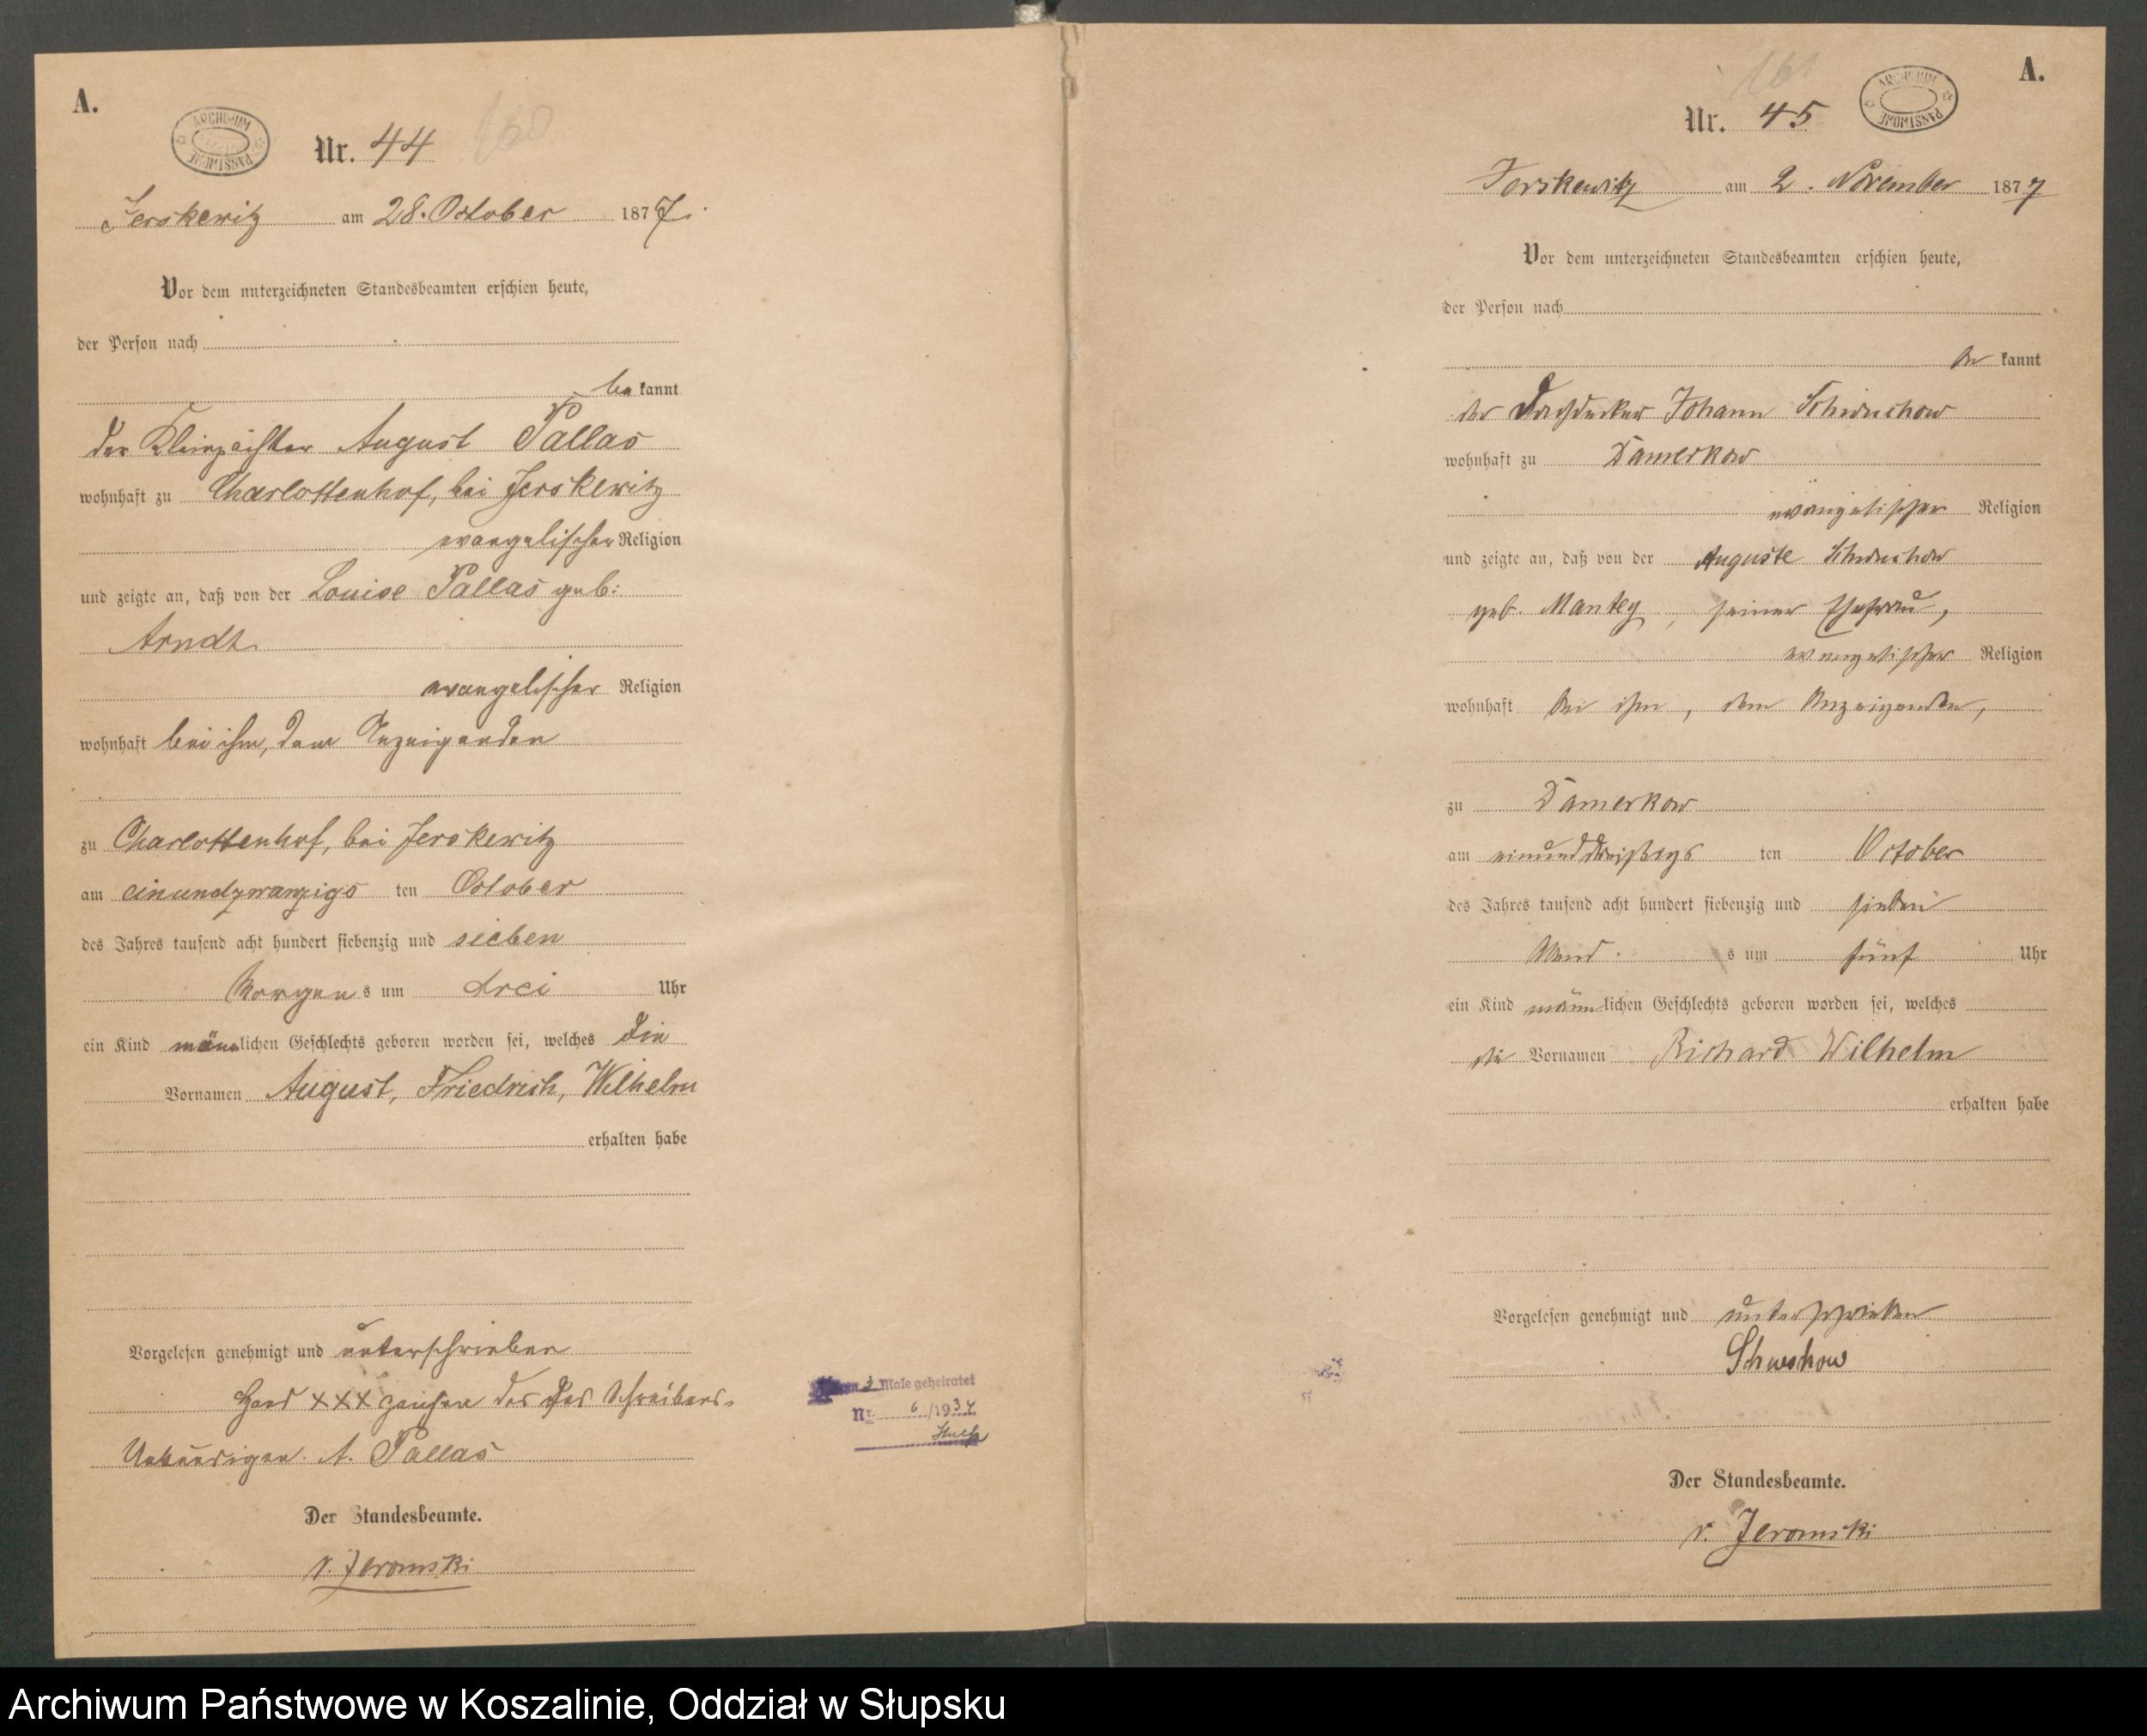 A.
ARCHIWUM PAŃSTWOWE
Nr. 44
160
Jerskewitz am 28. October 1877.
Vor dem unterzeichneten Standesbeamten erschien heute,
der Person nach
be kannt
der Kleinpächter August Pallas
wohnhaft zu Charlottenhof, bei Jerskewitz
evangelischer Religion
und zeigte an, daß von der Louise Pallas geb:
Arndt
evangelischer Religion
wohnhaft bei ihm, dem Anzeigenden
zu Charlottenhof, bei Jerskewitz
am einundzwanzigs ten October
des Jahres tausend acht hundert siebenzig und sieben
Morgens um drei Uhr
ein Kind männlichen Geschlechts geboren worden sei, welches die
Vornamen August, Friedrich, Wilhelm
erhalten habe
Vorgelesen genehmigt und unterschrieben
Hand xxx zeichen des des Schreibens
Unkundigen. A. Pallas
Der Standesbeamte.
v. Jeromski
3 Male geheiratet
Nr. 6/1934
A.
161
ARCHIWUM PAŃSTWOWE
Nr. 45
Jerskewitz am 2. November 1877
Vor dem unterzeichneten Standesbeamten erschien heute,
der Person nach
be kannt
der Dachdecker Johann
wohnhaft zu Damerkow
evangelischer Religion
und zeigte an, daß von der Auguste
geb. Mantey, seiner Ehefrau,
evangelischer Religion
wohnhaft bei ihm, dem Anzeigenden,
zu Damerkow
am einunddreißigs ten October
des Jahres tausend acht hundert siebenzig und sieben
Abend s um fünf Uhr
ein Kind männlichen Geschlechts geboren worden sei, welches
die Vornamen Richard Wilhelm
erhalten habe
Vorgelesen genehmigt und unterschrieben
Der Standesbeamte.
v. Jeromski
Archiwum Państwowe w Koszalinie, Oddział w Słupsku